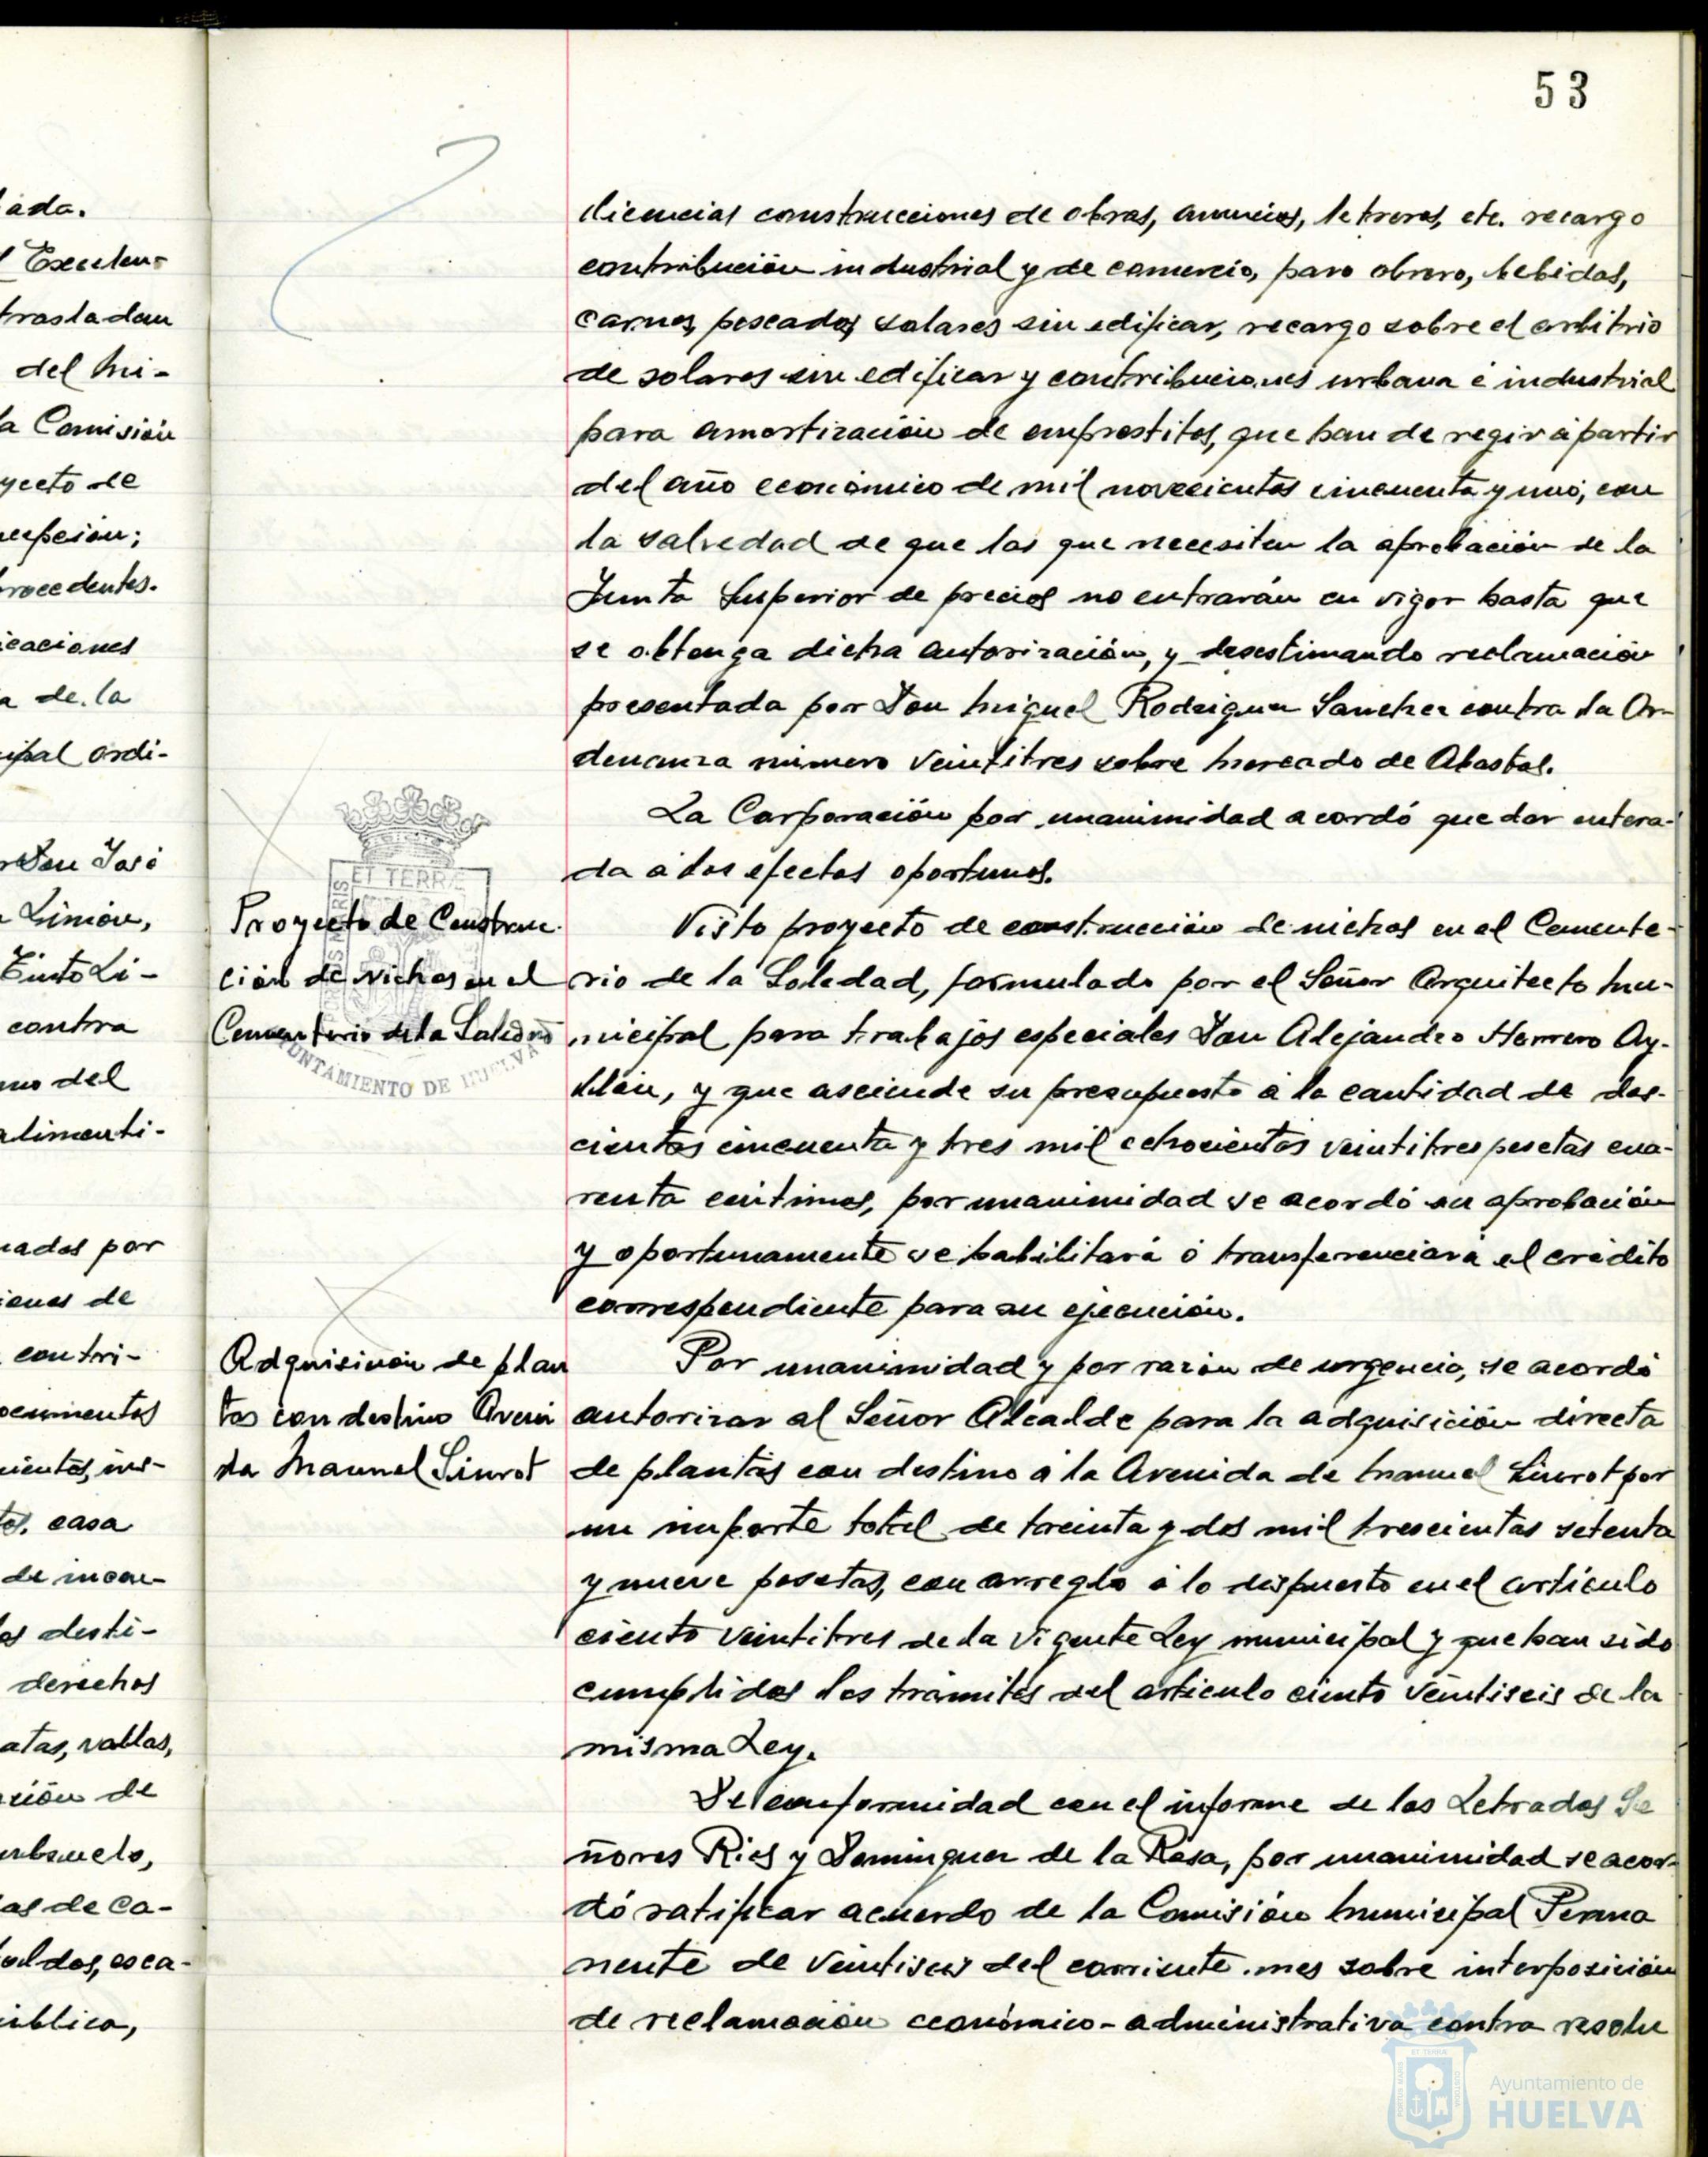 53
licencias construcciones de obras, anuncios, letreros, etc. recargo
contribución industrial y de comercio, paro obrero, bebidas,
carnes, pescados, solares sin edificar, recargo sobre el arbitrio
de solares sin edificar y contribuciones urbana é industrial
para amortización de empréstitos, que han de regir á partir
del año económico de mil novecientos cincuenta y uno, con
la salvedad de que las que necesiten la aprobación de la
Junta Superior de precios no entrarán en vigor hasta que
se obtenga dicha autorización, y desestimando reclamación
presentada por Don Miguel Rodriguez Sanchez contra la Or-
denanza número veintitres sobre Mercado de Abastos.
La Corporación por unanimidad acordó quedar entera-
da á los efectos oportunos.
Proyecto de Construc-
ción de Nichos en el
Cementerio de la Soledad
Visto proyecto de construcción de nichos en el Cemente-
rio de la Soledad, formulado por el Señor Arquitecto Mu-
nicipal para trabajos especiales Don Alejandro Herrero Ay-
llón, y que asciende su presupuesto á la cantidad de dos-
cientas cincuenta y tres mil ochocientas veintitres pesetas cua-
renta céntimos, por unanimidad se acordó su aprobación
y oportunamente se habilitará ó transferenciará el crédito
correspondiente para su ejecución.
Adquisición de plan
tas con destino Aveni
da Manuel Siurot
Por unanimidad y por razón de urgencia, se acordó
autorizar al Señor Alcalde para la adquisición directa
de plantas con destino á la Avenida de Manuel Siurot por
un importe total de treinta y dos mil trescientas setenta
y nueve pesetas, con arreglo á lo dispuesto en el artículo
ciento veintitres de la vigente Ley municipal y que han sido
cumplidos los trámites del artículo ciento veintiseis de la
misma Ley.
De conformidad con el informe de los Letrados Se
ñores Rios y Dominguez de la Rosa, por unanimidad se acor-
dó ratificar acuerdo de la Comisión Municipal Perma
nente de veintiseis del corriente mes sobre interposición
de reclamación económico-administrativa contra resolu
ada.
trasladan
del Mi-
a Comisión
yecto de
cepción;
rocedentes.
icaciones
a de la
ipal ordi-
Don José
Limón,
Pinto Li-
contra
mo del
alimenti-
nados por
iones de
contri-
ocumentos
casa
de incen-
os desti-
derechos
atas, vallas,
ción de
ubsuelo,
as de ca-
oldos, esca-
ública,
ET TERRÆ
AYUNTAMIENTO DE HUELVA
Ayuntamiento de
HUELVA